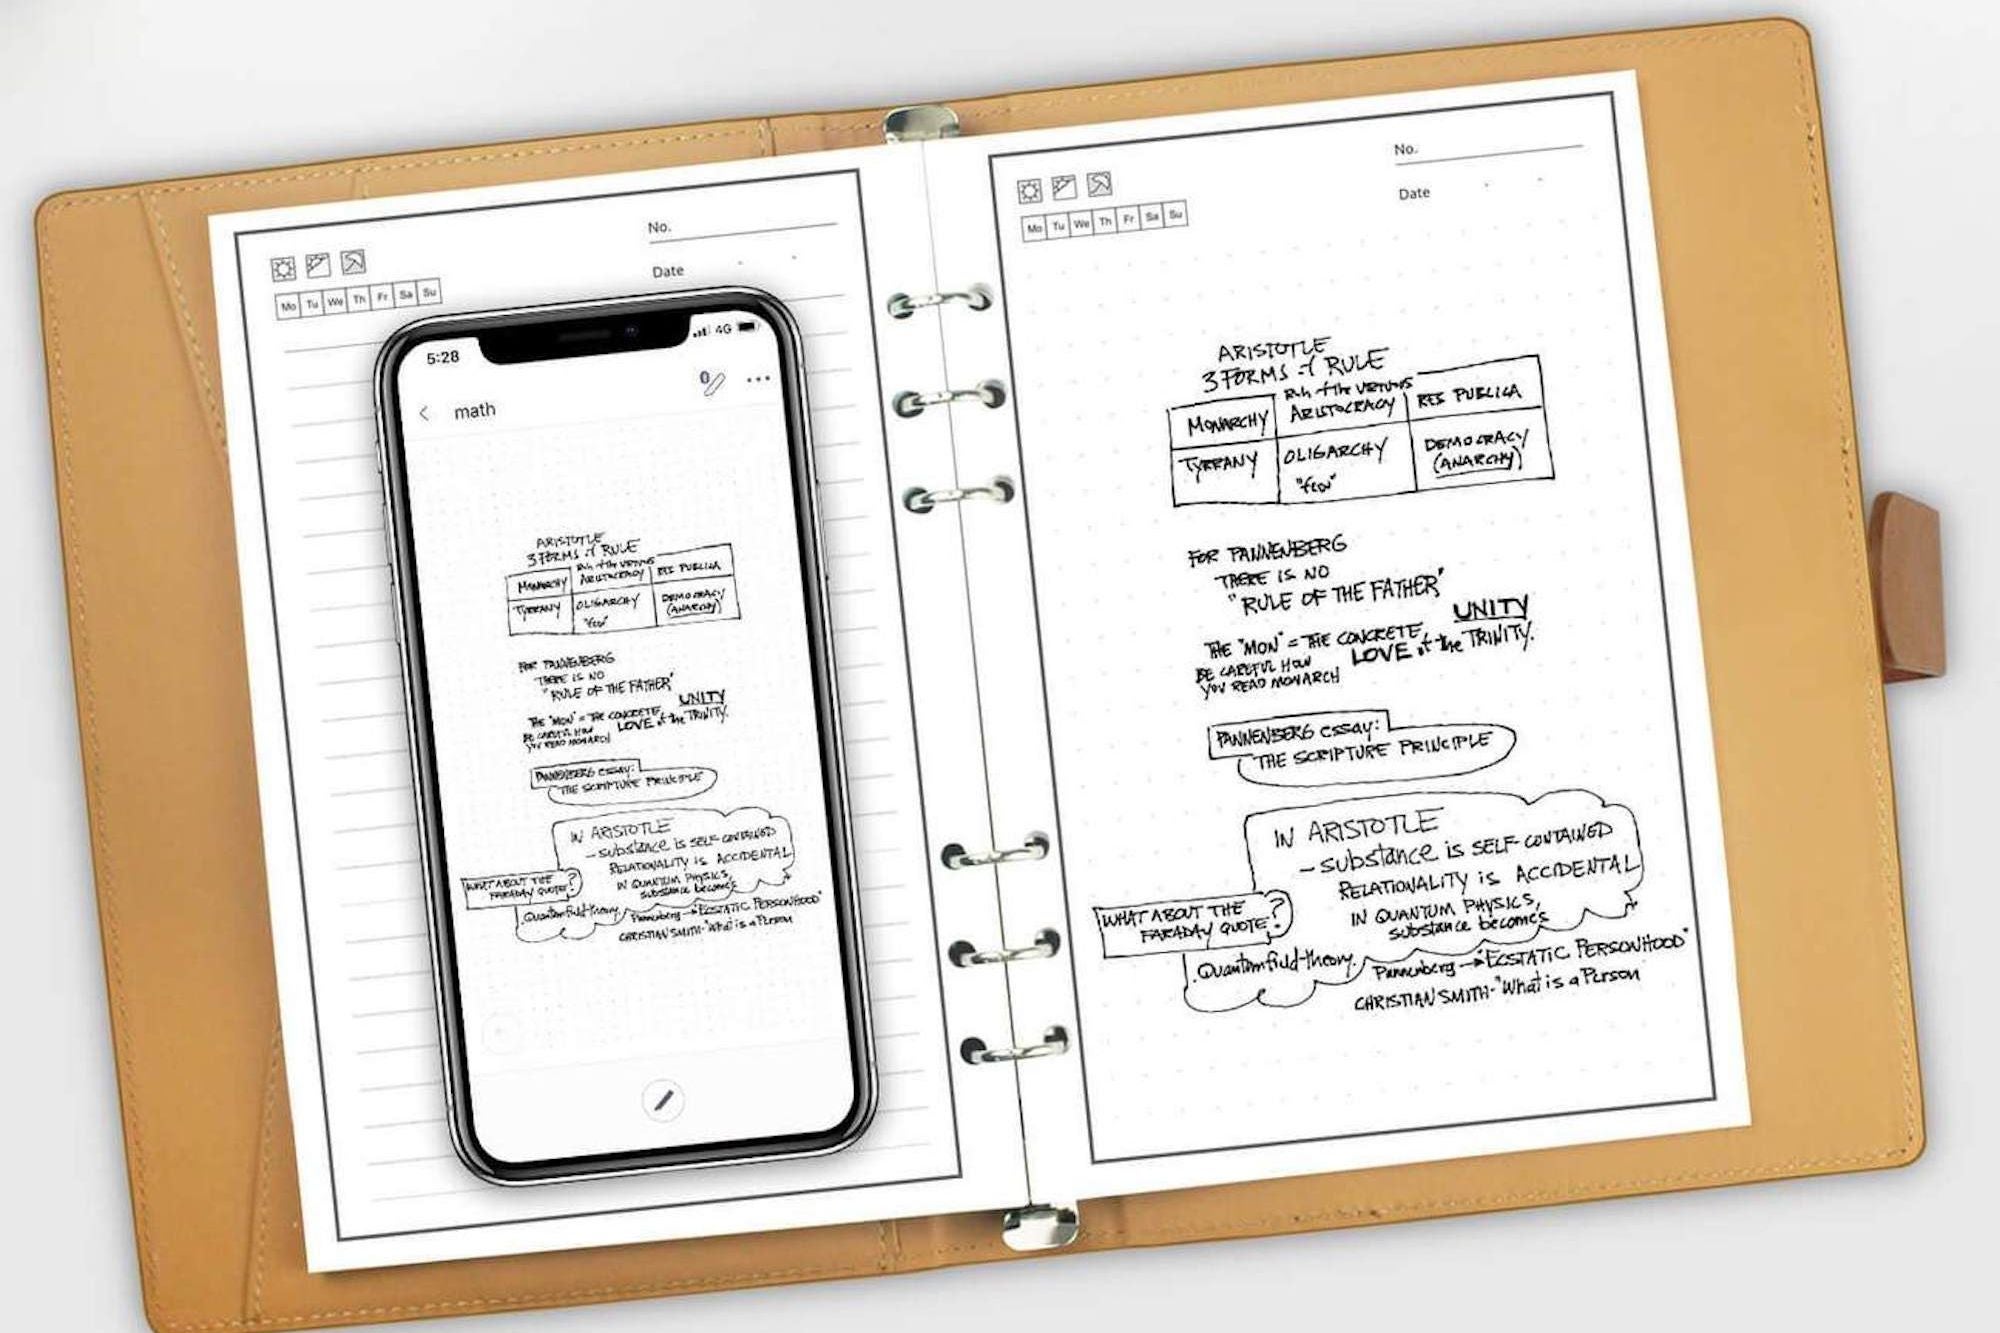 No.
Date
Mo Tu We Th Fr Sa Su
5:28
4G
math
ARISTOTLE
3 FORMS of RULE
Rule of the VIRTUOUS
MONARCHY ARISTOCRACY RES PUBLICA
TYRRANY OLIGARCHY DEMOCRACY
"few" (ANARCHY)
FOR PANNENBERG
THERE IS NO
"RULE OF THE FATHER"
UNITY
THE "MON" = THE CONCRETE,
LOVE of the TRINITY.
BE CAREFUL HOW
YOU READ MONARCH
PANNENBERG essay:
THE SCRIPTURE PRINCIPLE
IN ARISTOTLE
- substance is SELF-CONTAINED
RELATIONALITY is ACCIDENTAL
IN QUANTUM PHYSICS,
substance becomes
WHAT ABOUT THE
FARADAY QUOTE?
Quantum field theory.
Pannenberg → "ECSTATIC PERSONHOOD"
CHRISTIAN SMITH - "What is a Person
No.
Date
Mo Tu We Th Fr Sa Su
ARISTOTLE
3 FORMS of RULE
Rule of the VIRTUOUS
MONARCHY ARISTOCRACY RES PUBLICA
TYRRANY OLIGARCHY DEMOCRACY
"few" (ANARCHY)
FOR PANNENBERG
THERE IS NO
"RULE OF THE FATHER"
UNITY
THE "MON" = THE CONCRETE,
LOVE of the TRINITY.
BE CAREFUL HOW
YOU READ MONARCH
PANNENBERG essay:
THE SCRIPTURE PRINCIPLE
IN ARISTOTLE
- substance is SELF-CONTAINED
RELATIONALITY is ACCIDENTAL
IN QUANTUM PHYSICS,
substance becomes
WHAT ABOUT THE
FARADAY QUOTE?
Quantum field theory.
Pannenberg → "ECSTATIC PERSONHOOD"
CHRISTIAN SMITH - "What is a Person